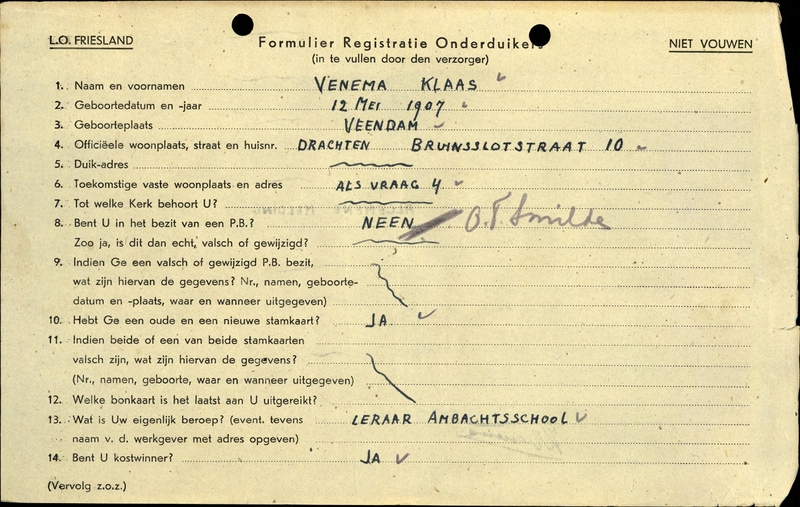 L.O. FRIESLAND
Formulier Registratie Onderduikers
NIET VOUWEN
(in te vullen door den verzorger)
1. Naam en voornamen VENEMA KLAAS
2. Geboortedatum en -jaar 12 MEI 1907
3. Geboorteplaats VEENDAM
4. Officiëele woonplaats, straat en huisnr. DRACHTEN BRUINSSLOTSTRAAT 10
5. Duik-adres
6. Toekomstige vaste woonplaats en adres ALS VRAAG 4
7. Tot welke Kerk behoort U?
8. Bent U in het bezit van een P.B.? NEEN O.T. Smilde
Zoo ja, is dit dan echt, valsch of gewijzigd?
9. Indien Ge een valsch of gewijzigd P.B. bezit,
wat zijn hiervan de gegevens? Nr., namen, geboorte-
datum en -plaats, waar en wanneer uitgegeven)
10. Hebt Ge een oude en een nieuwe stamkaart? JA
11. Indien beide of een van beide stamkaarten
valsch zijn, wat zijn hiervan de gegevens?
(Nr., namen, geboorte, waar en wanneer uitgegeven)
12. Welke bonkaart is het laatst aan U uitgereikt?
13. Wat is Uw eigenlijk beroep? (event. tevens LERAAR AMBACHTSSCHOOL
naam v. d. werkgever met adres opgeven)
14. Bent U kostwinner? JA
(Vervolg z.o.z.)